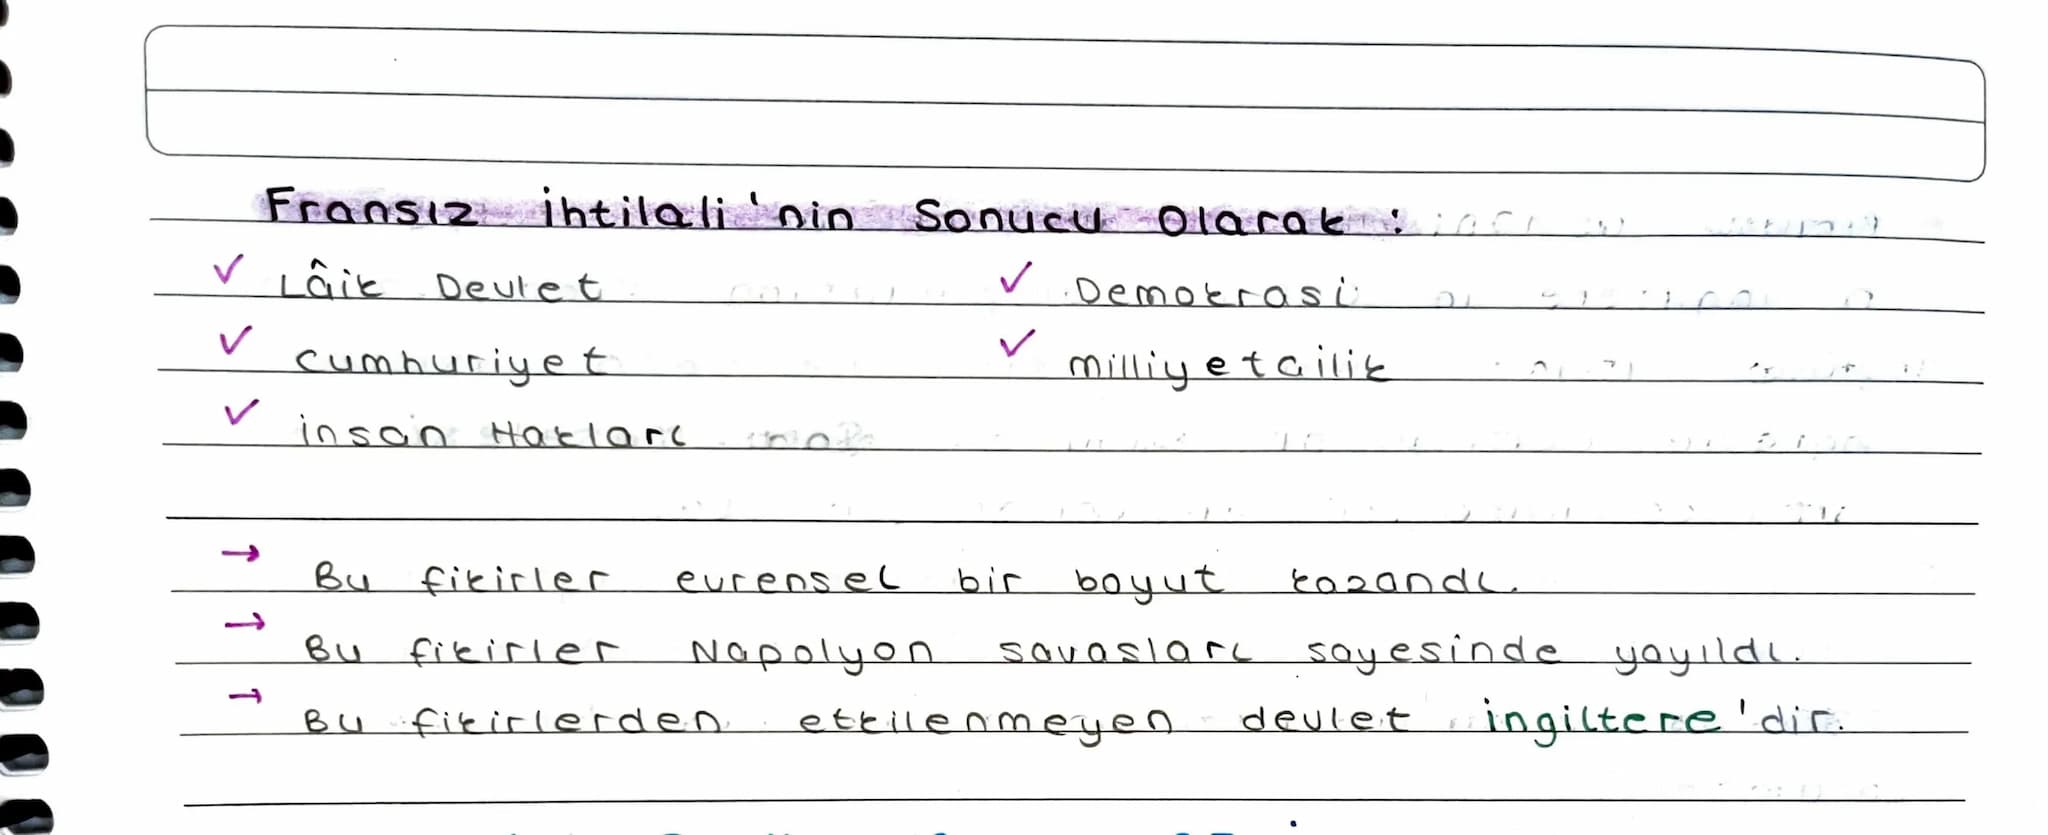 Fransız ihtilali'nin Sonucu Olarak:
✓ Lâik Devlet ✓ Demokrasi
✓ Cumhuriyet ✓ milliyetcilik
✓ insan Hakları
→ Bu fikirler evrensel bir boyut kazandı.
→ Bu fikirler Napolyon savasları sayesinde yayıldı.
→ Bu fikirlerden etkilenmeyen devlet ingiltere'dir.